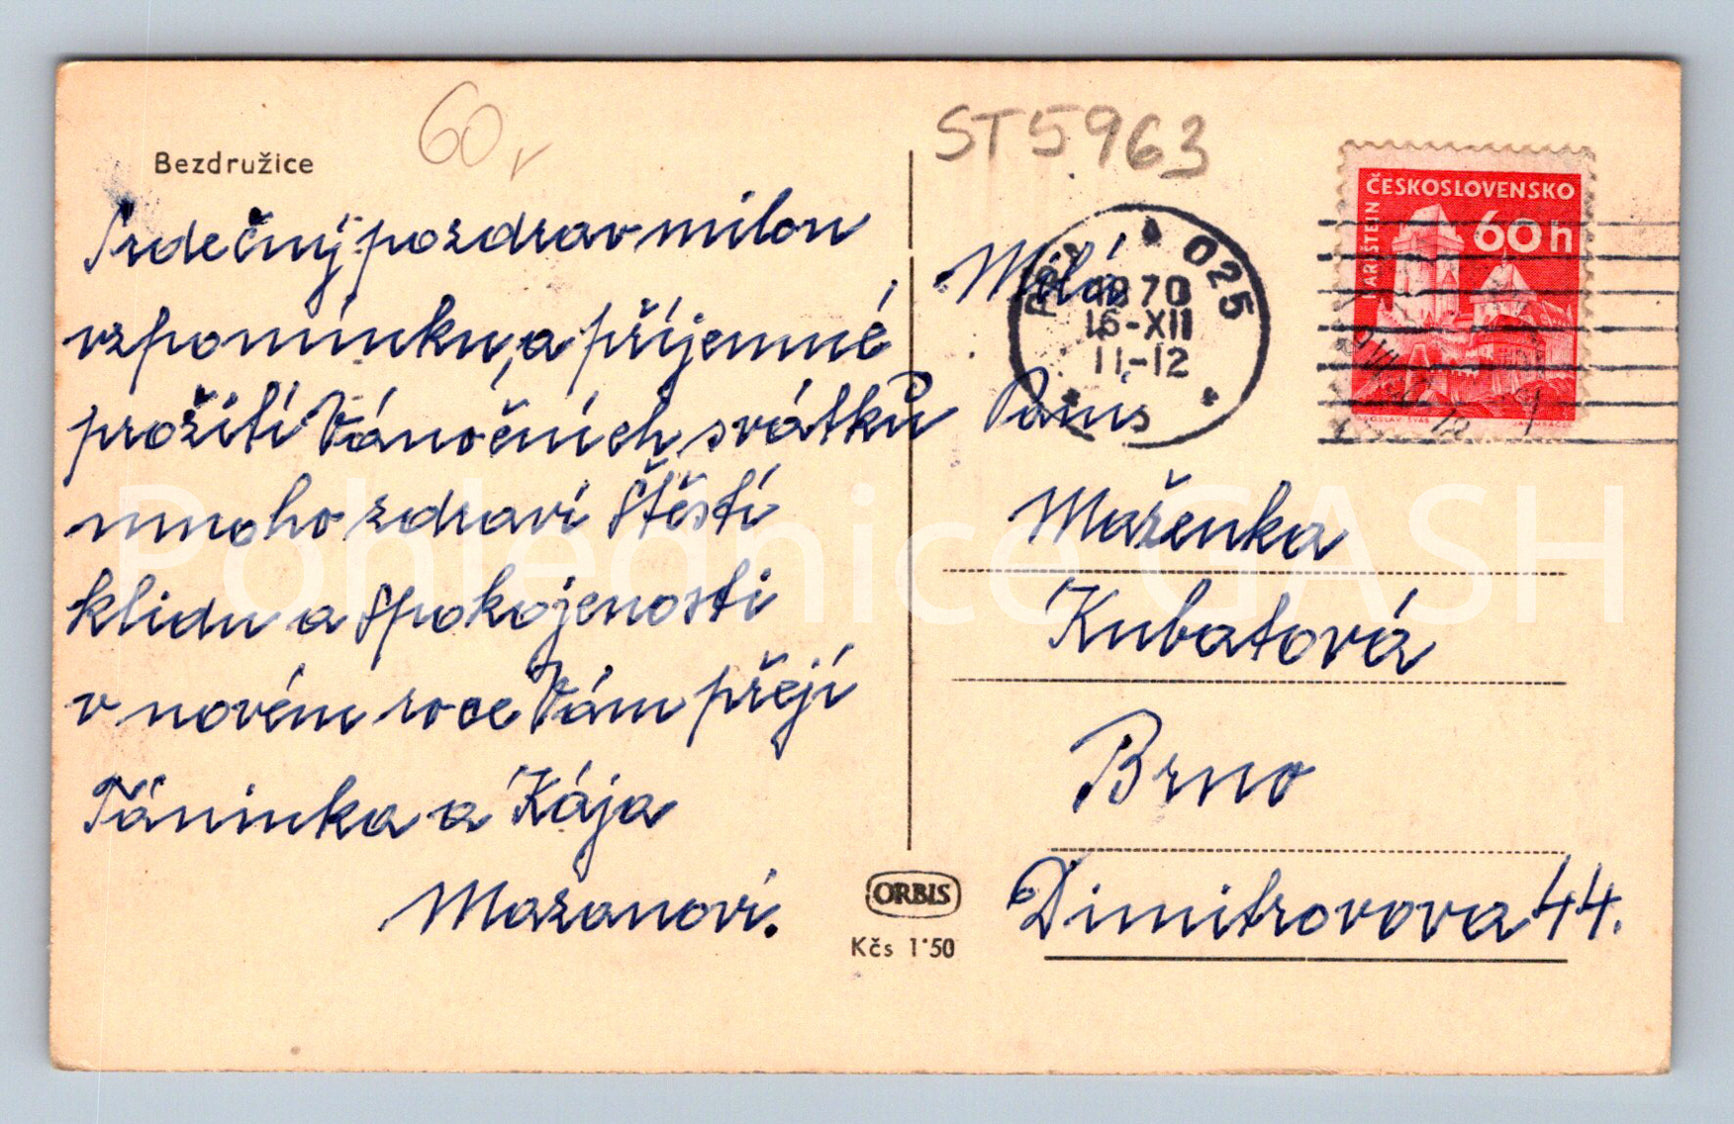 Bezdružice
60
ST5963
Srdečný pozdrav milou
vzpomínku, a příjemné
prožití Vánočních svátků
mnoho zdraví štěstí
klidu a spokojenosti
v novém roce Vám přejí
Táninka a Kája
Mazanovi.
Milá
Paní
Mařenka
Kubatová
Brno
Dimitrovova 44.
025
1970
15-XII
11-12
ČESKOSLOVENSKO
60h
KARLŠTEJN
ORBIS
Kčs 1·50
Pohlednice GASH